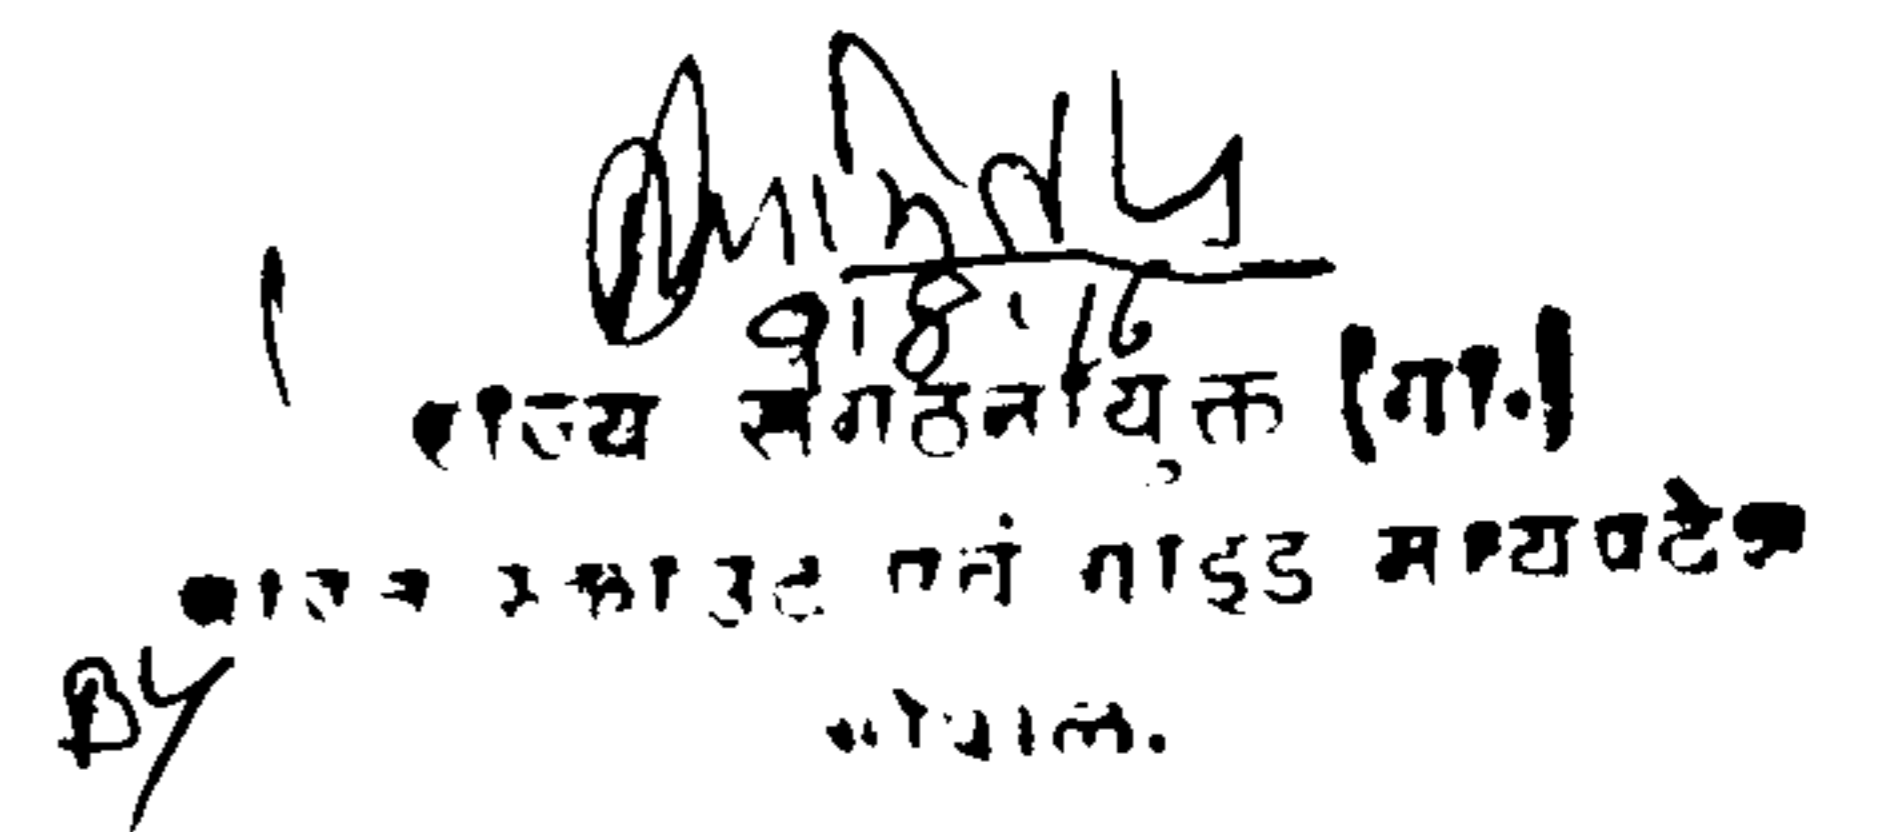 राज्य संगठनायुक्त (गा.)
भारत स्काउट एवं गाइड मध्यप्रदेश
By
भोपाल.